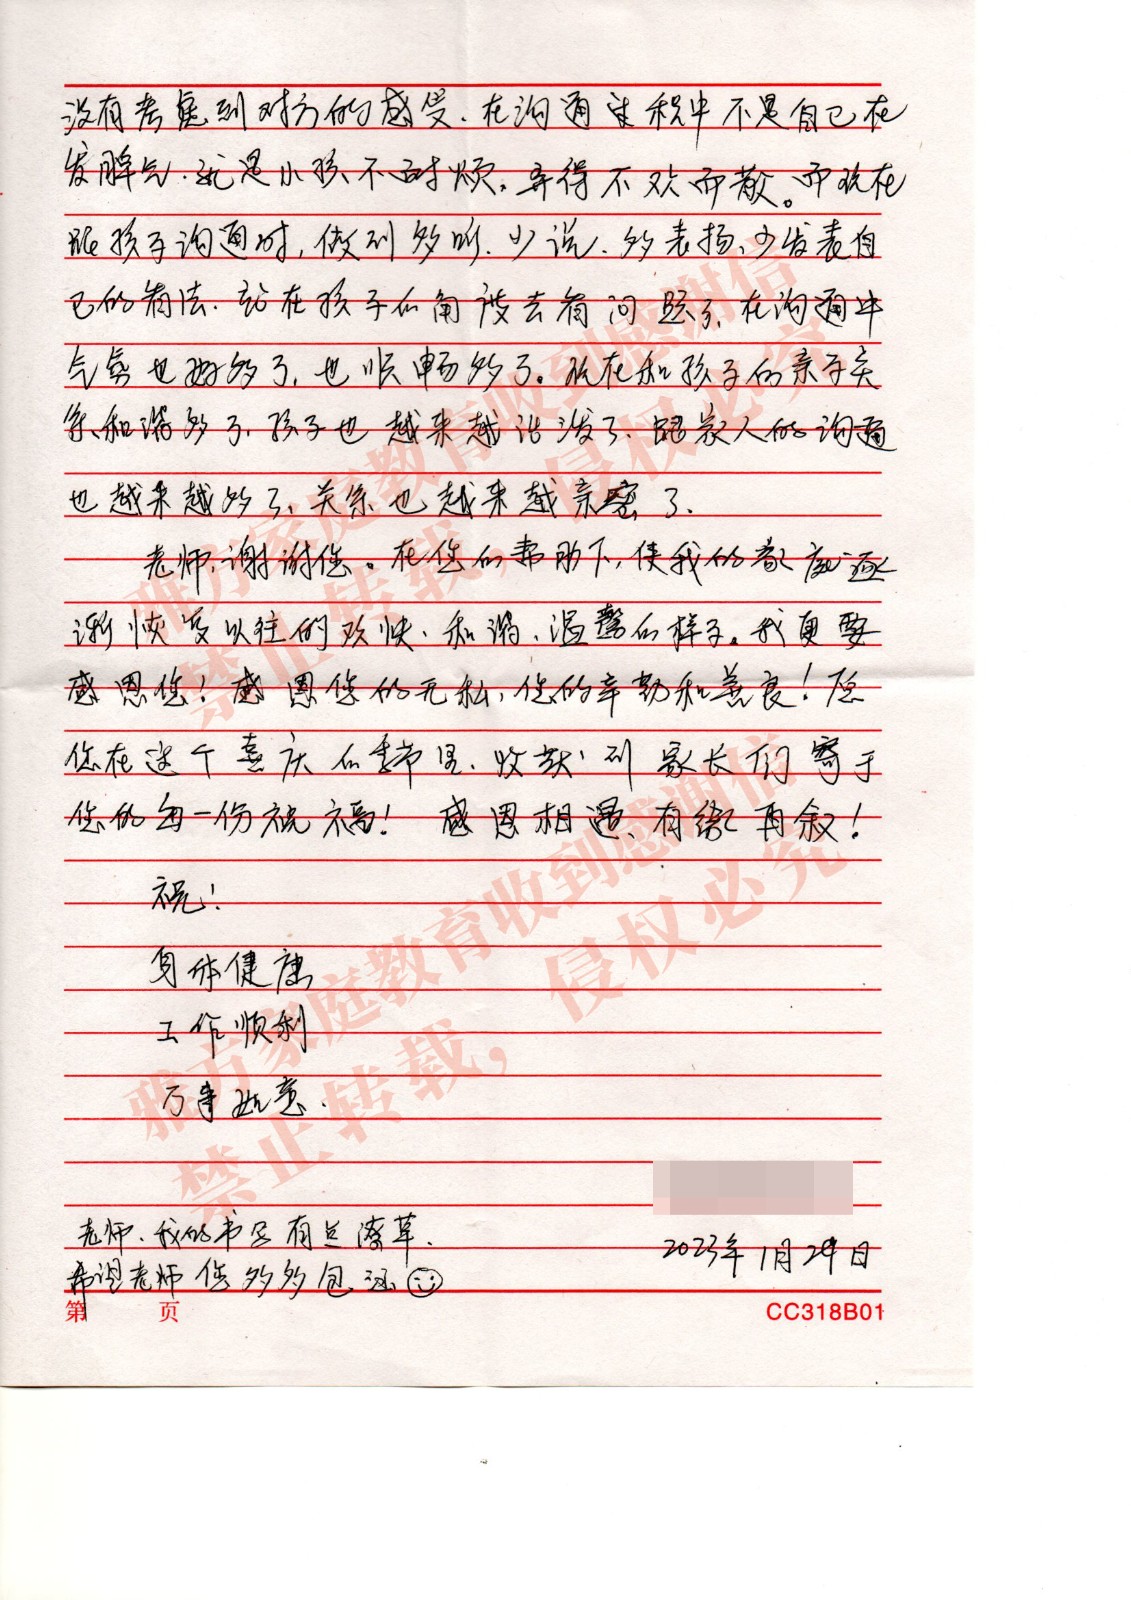 没有考虑到对方的感受.在沟通过程中不是自己在
发脾气.就是小孩不耐烦,弄得不欢而散。而现在
跟孩子沟通时,做到多听.少说.多表扬、少发表自
己的看法.站在孩子的角度去看问题了、在沟通中
气氛也好多了,也顺畅多了。现在和孩子的亲子关
系和谐多了、孩子也越来越活泼了、跟家人的沟通
也越来越多了、关系也越来越亲密了.
老师,谢谢您。在您的帮助下,使我的家庭逐
渐恢复以往的欢快、和谐、温馨的样子。我更要
感恩您!感恩您的无私,您的辛勤和善良!愿
您在这个喜庆的季节里、收获到家长们寄于
您的每一份祝福! 感恩相遇、有缘再叙!
祝!
身体健康
工作顺利
万事如意.
老师、我的书写有些潦草.
2023年1月29日
希望老师您多多包涵
第 页
CC318B01
雅方家庭教育收到感谢信
禁止转载,侵权必究
雅方家庭教育收到感谢信
禁止转载,侵权必究